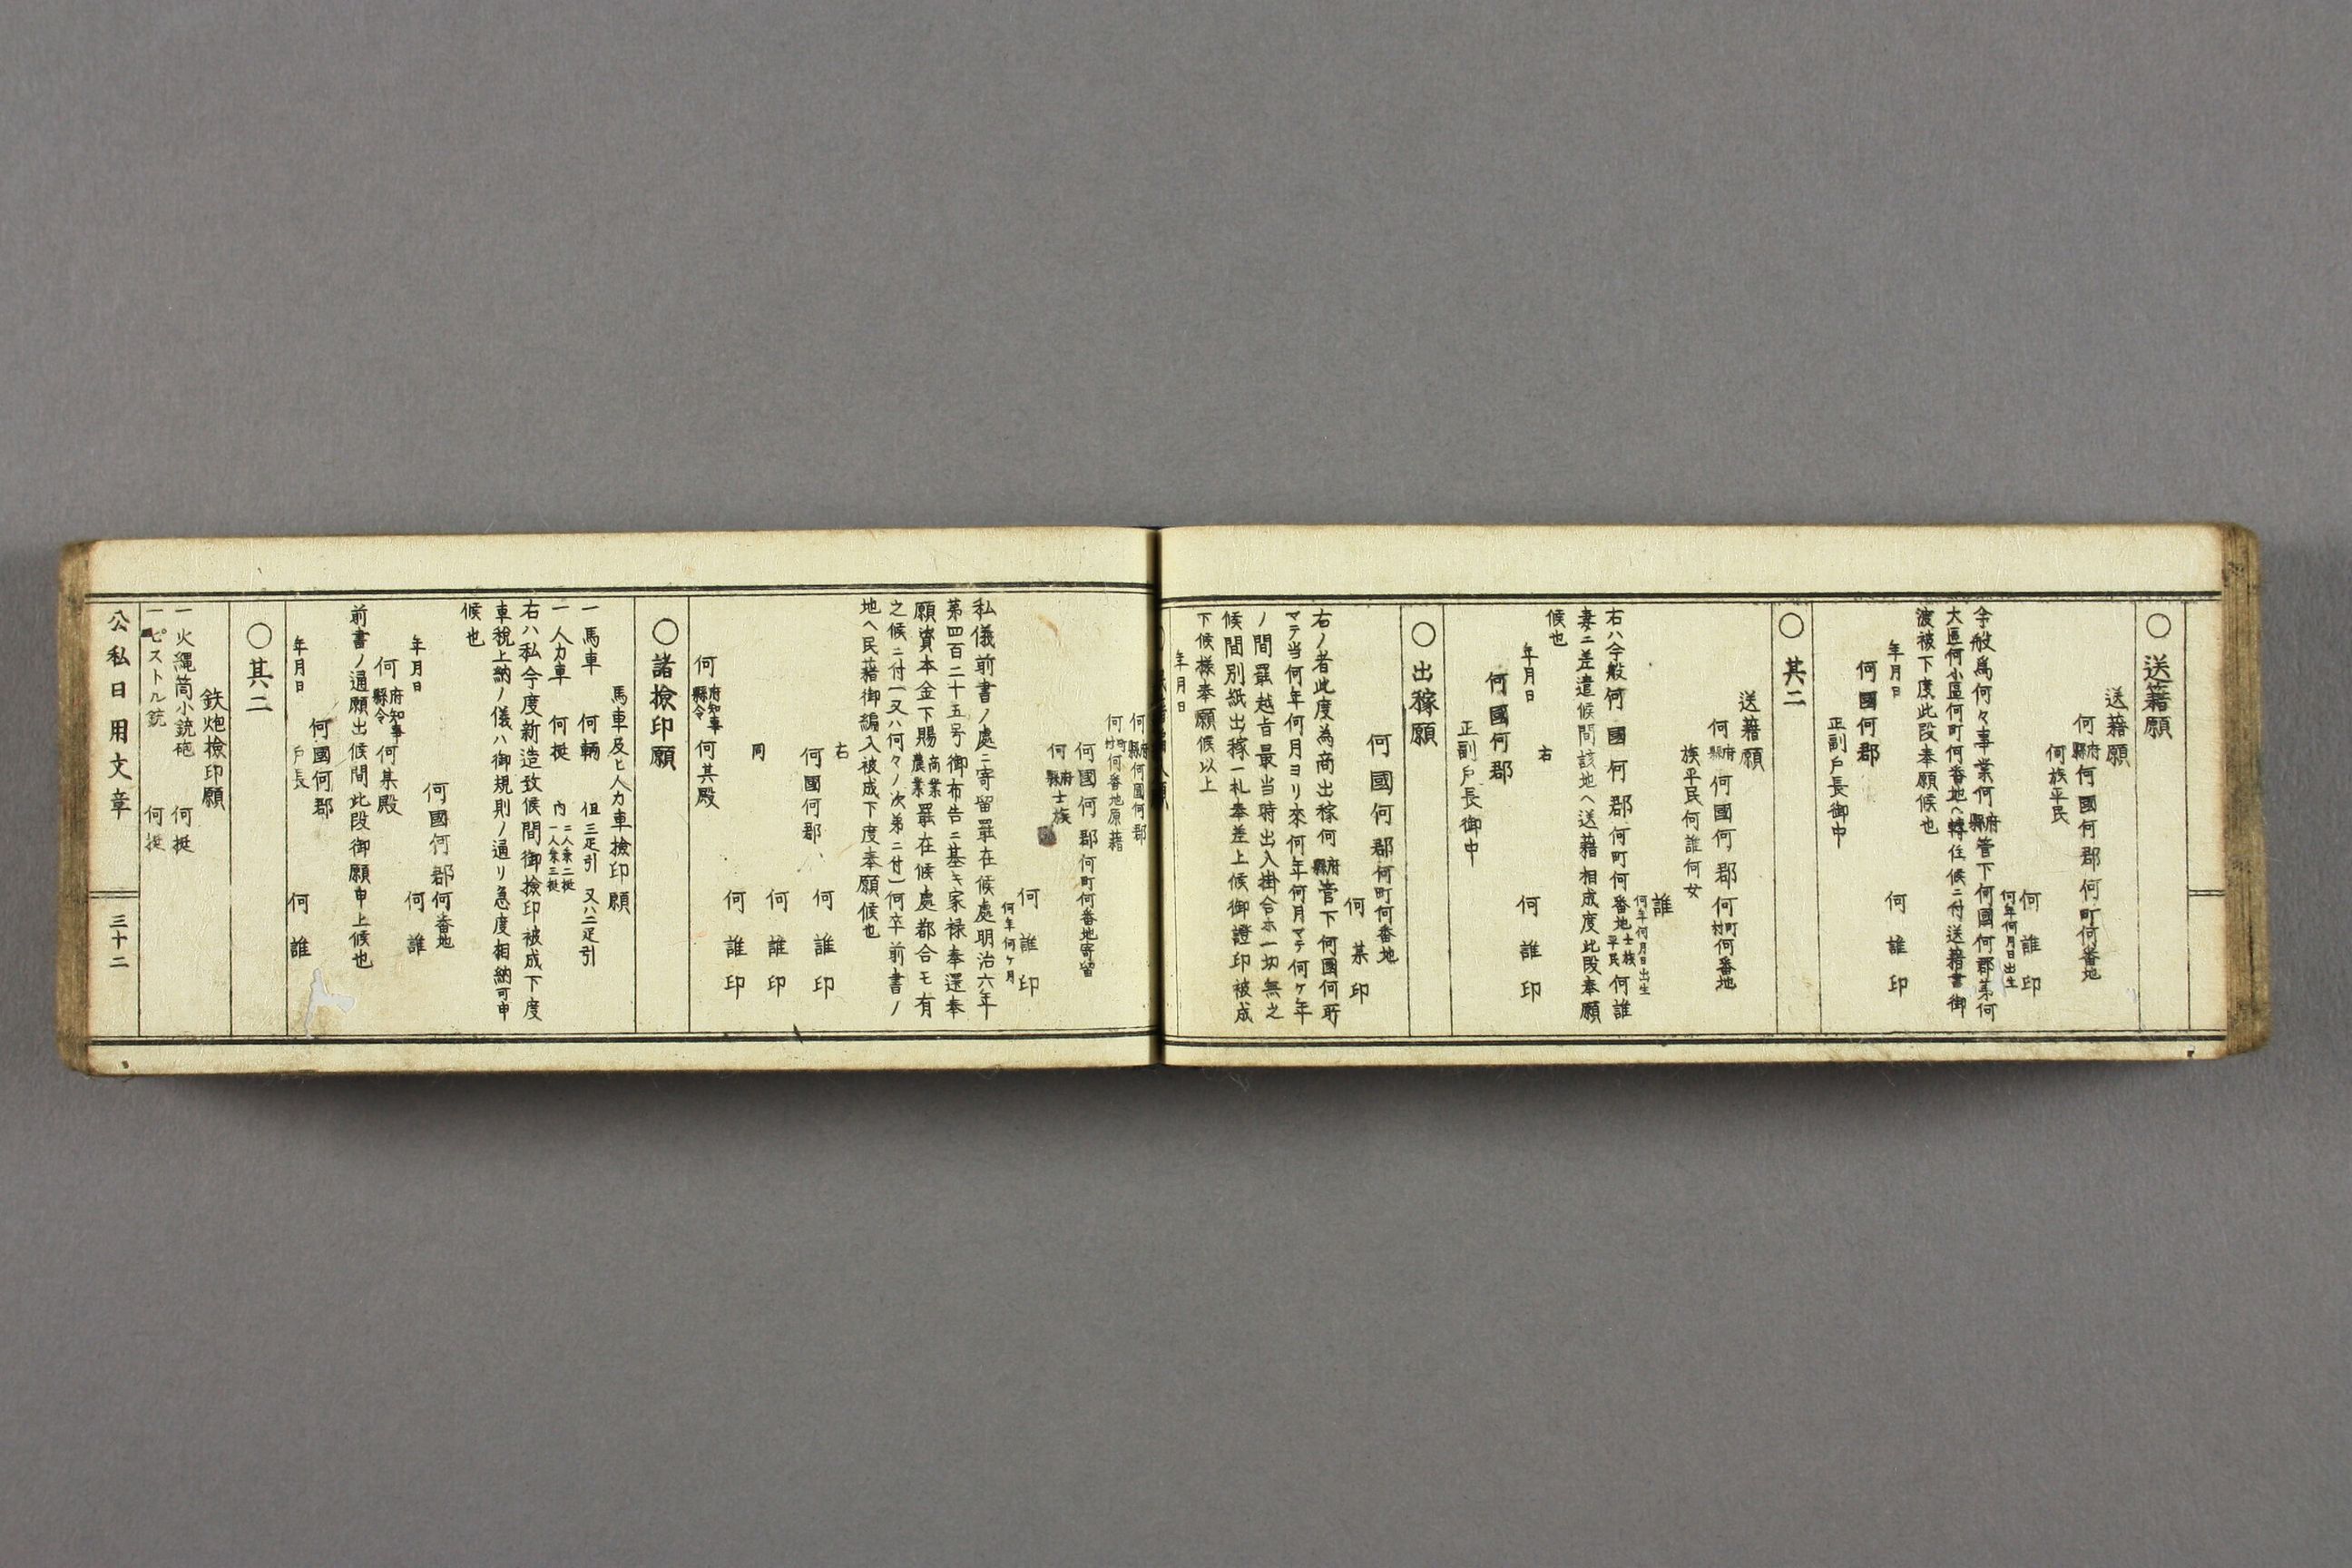 〇送籍願
送籍願
何府縣何國何郡何町何番地
何族平民
何誰印
何年何月日出生
今般為何々事業何府縣管下何國何郡第何
大區何小區何町何番地ヘ轉住候ニ付送籍書御
渡被下度此段奉願候也
年月日
何誰印
何國何郡
正副戸長御中
〇其二
送籍願
何府縣何國何郡何町村何番地
族平民何誰何女
誰
何年何月日出生
右ハ今般何國何郡何町何番地士族平民何誰
妻ニ差遣候間該地ヘ送籍相成度此段奉願
候也
右
年月日
何誰印
何國何郡
正副戸長御中
〇出稼願
何國何郡何町何番地
何某印
右ノ者此度為商出稼何府縣管下何國何所
マテ当何年何月ヨリ來何年何月マテ何ヶ年
ノ間罷越旨最当時出入掛合ホ一切無之
候間別紙出稼一札奉差上候御證印被成
下候様奉願候以上
年月日
何府縣何國何郡
何町村何番地原籍
何國何郡何町何番地寄留
何府縣士族
何誰印
何年何ヶ月
私儀前書ノ處ニ寄留罷在候處明治六年
第四百二十五号御布告ニ基キ家禄奉還奉
願資本金下賜商業農業罷在候處都合モ有
之候ニ付(又ハ何々ノ次第ニ付)何卒前書ノ
地ヘ民籍御編入被成下度奉願候也
右
何誰印
何國何郡
何誰印
同
何誰印
何府知事縣令何其殿
〇諸撿印願
馬車及ヒ人力車撿印願
一馬車 何輌 但三疋引 又ハ二疋引
一人力車 何挺 内二人乗二挺一人乗三挺
右ハ私今度新造致候間御撿印被成下度
車税上納ノ儀ハ御規則ノ通リ急度相納可申
候也
何國何郡何番地
年月日
何誰
何府知事縣令何某殿
前書ノ通願出候間此段御願申上候也
何國何郡
年月日
戸長
何誰
〇其二
鉄炮撿印願
一火縄筒小銃砲 何挺
一ピストル銃 何挺
公私日用文章
三十二